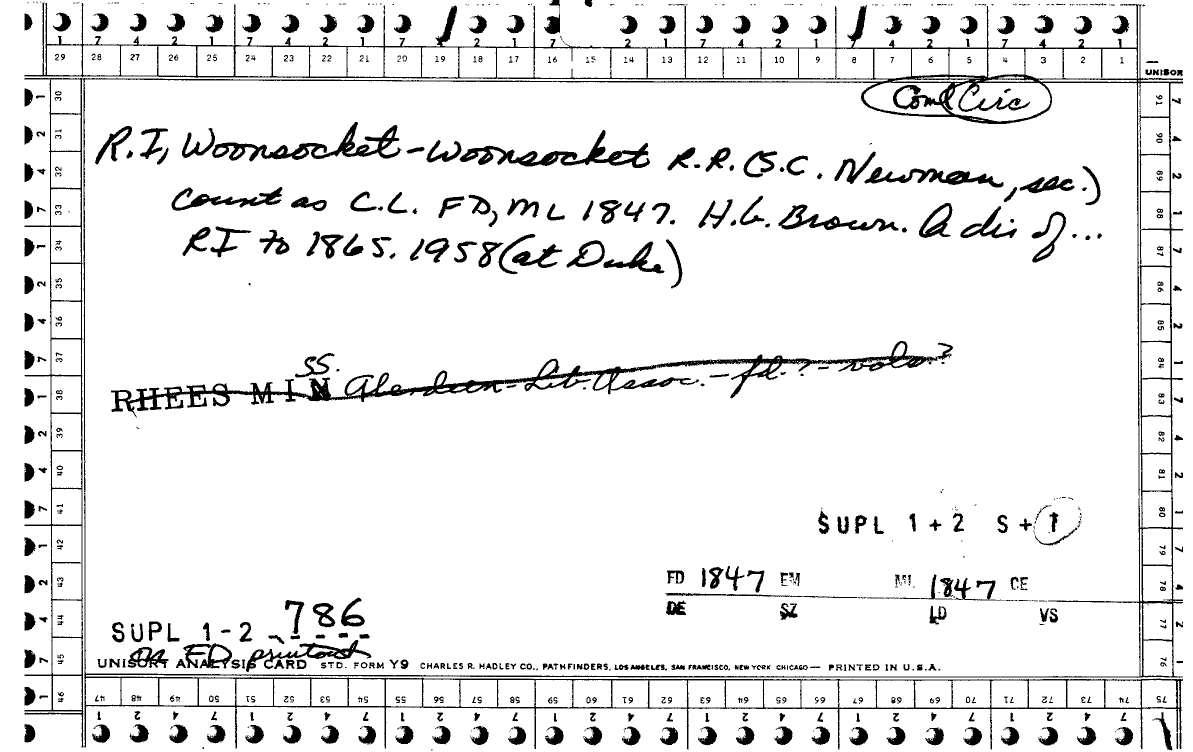 7 4 2 1 7 4 2 1 7 2 1 7 2 1 7 4 2 1 7 4 2 1 7 4 2 1
29 28 27 26 25 24 23 22 21 20 19 18 17 16 15 14 13 12 11 10 9 8 7 6 5 4 3 2 1
UNISOR
Coml Circ
R.I, Woonsocket-Woonsocket R.R. (S.C. Newman, sec.)
count as C.L. FD, ML 1847. H.G. Brown. A dis of...
RI to 1865. 1958 (at Duke)
SS.
RHEES MIN Aberdeen-Lib. Assoc. - fd. ? - vols?
SUPL 1+2 S+1
FD 1847 EM ML 1847 CE
DE SZ LD VS
SUPL 1-2 786
on FD printout
UNISORT ANALYSIS CARD STD. FORM Y9 CHARLES R. HADLEY CO., PATHFINDERS, LOS ANGELES, SAN FRANCISCO, NEW YORK CHICAGO — PRINTED IN U.S.A.
30 31 32 33 34 35 36 37 38 39 40 41 42 43 44 45 46
91 90 89 88 87 86 85 84 83 82 81 80 79 78 77 76 75
47 48 49 50 51 52 53 54 55 56 57 58 59 60 61 62 63 64 65 66 67 68 69 70 71 72 73 74
1 2 4 7 1 2 4 7 1 2 4 7 1 2 4 7 1 2 4 7 1 2 4 7 1 2 4 7